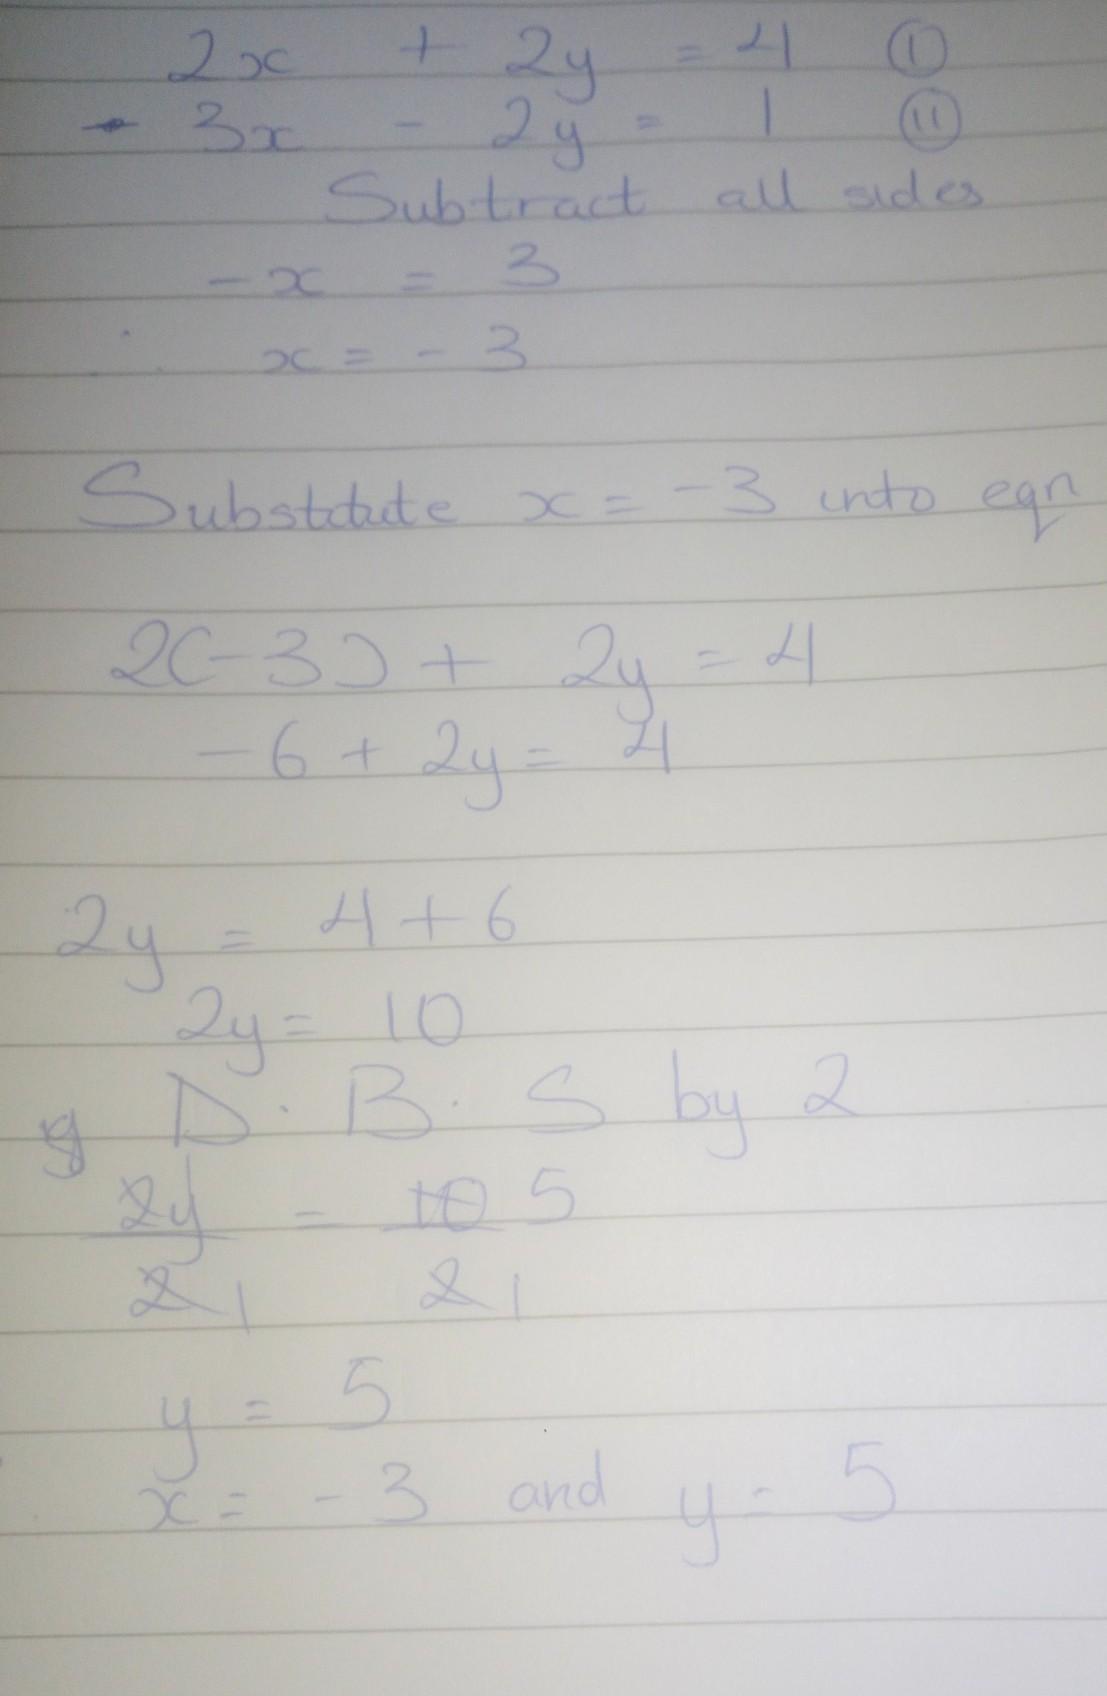 2x + 2y = 4 (I)
- 3x - 2y = 1 (II)
Subtract all sides
-x = 3
x = - 3
Substitute x = -3 into eqn
2(-3) + 2y = 4
-6 + 2y = 4
2y = 4 + 6
2y = 10
D. B. S by 2
2y = 10 5
2 1 2 1
y = 5
x = - 3 and y = 5